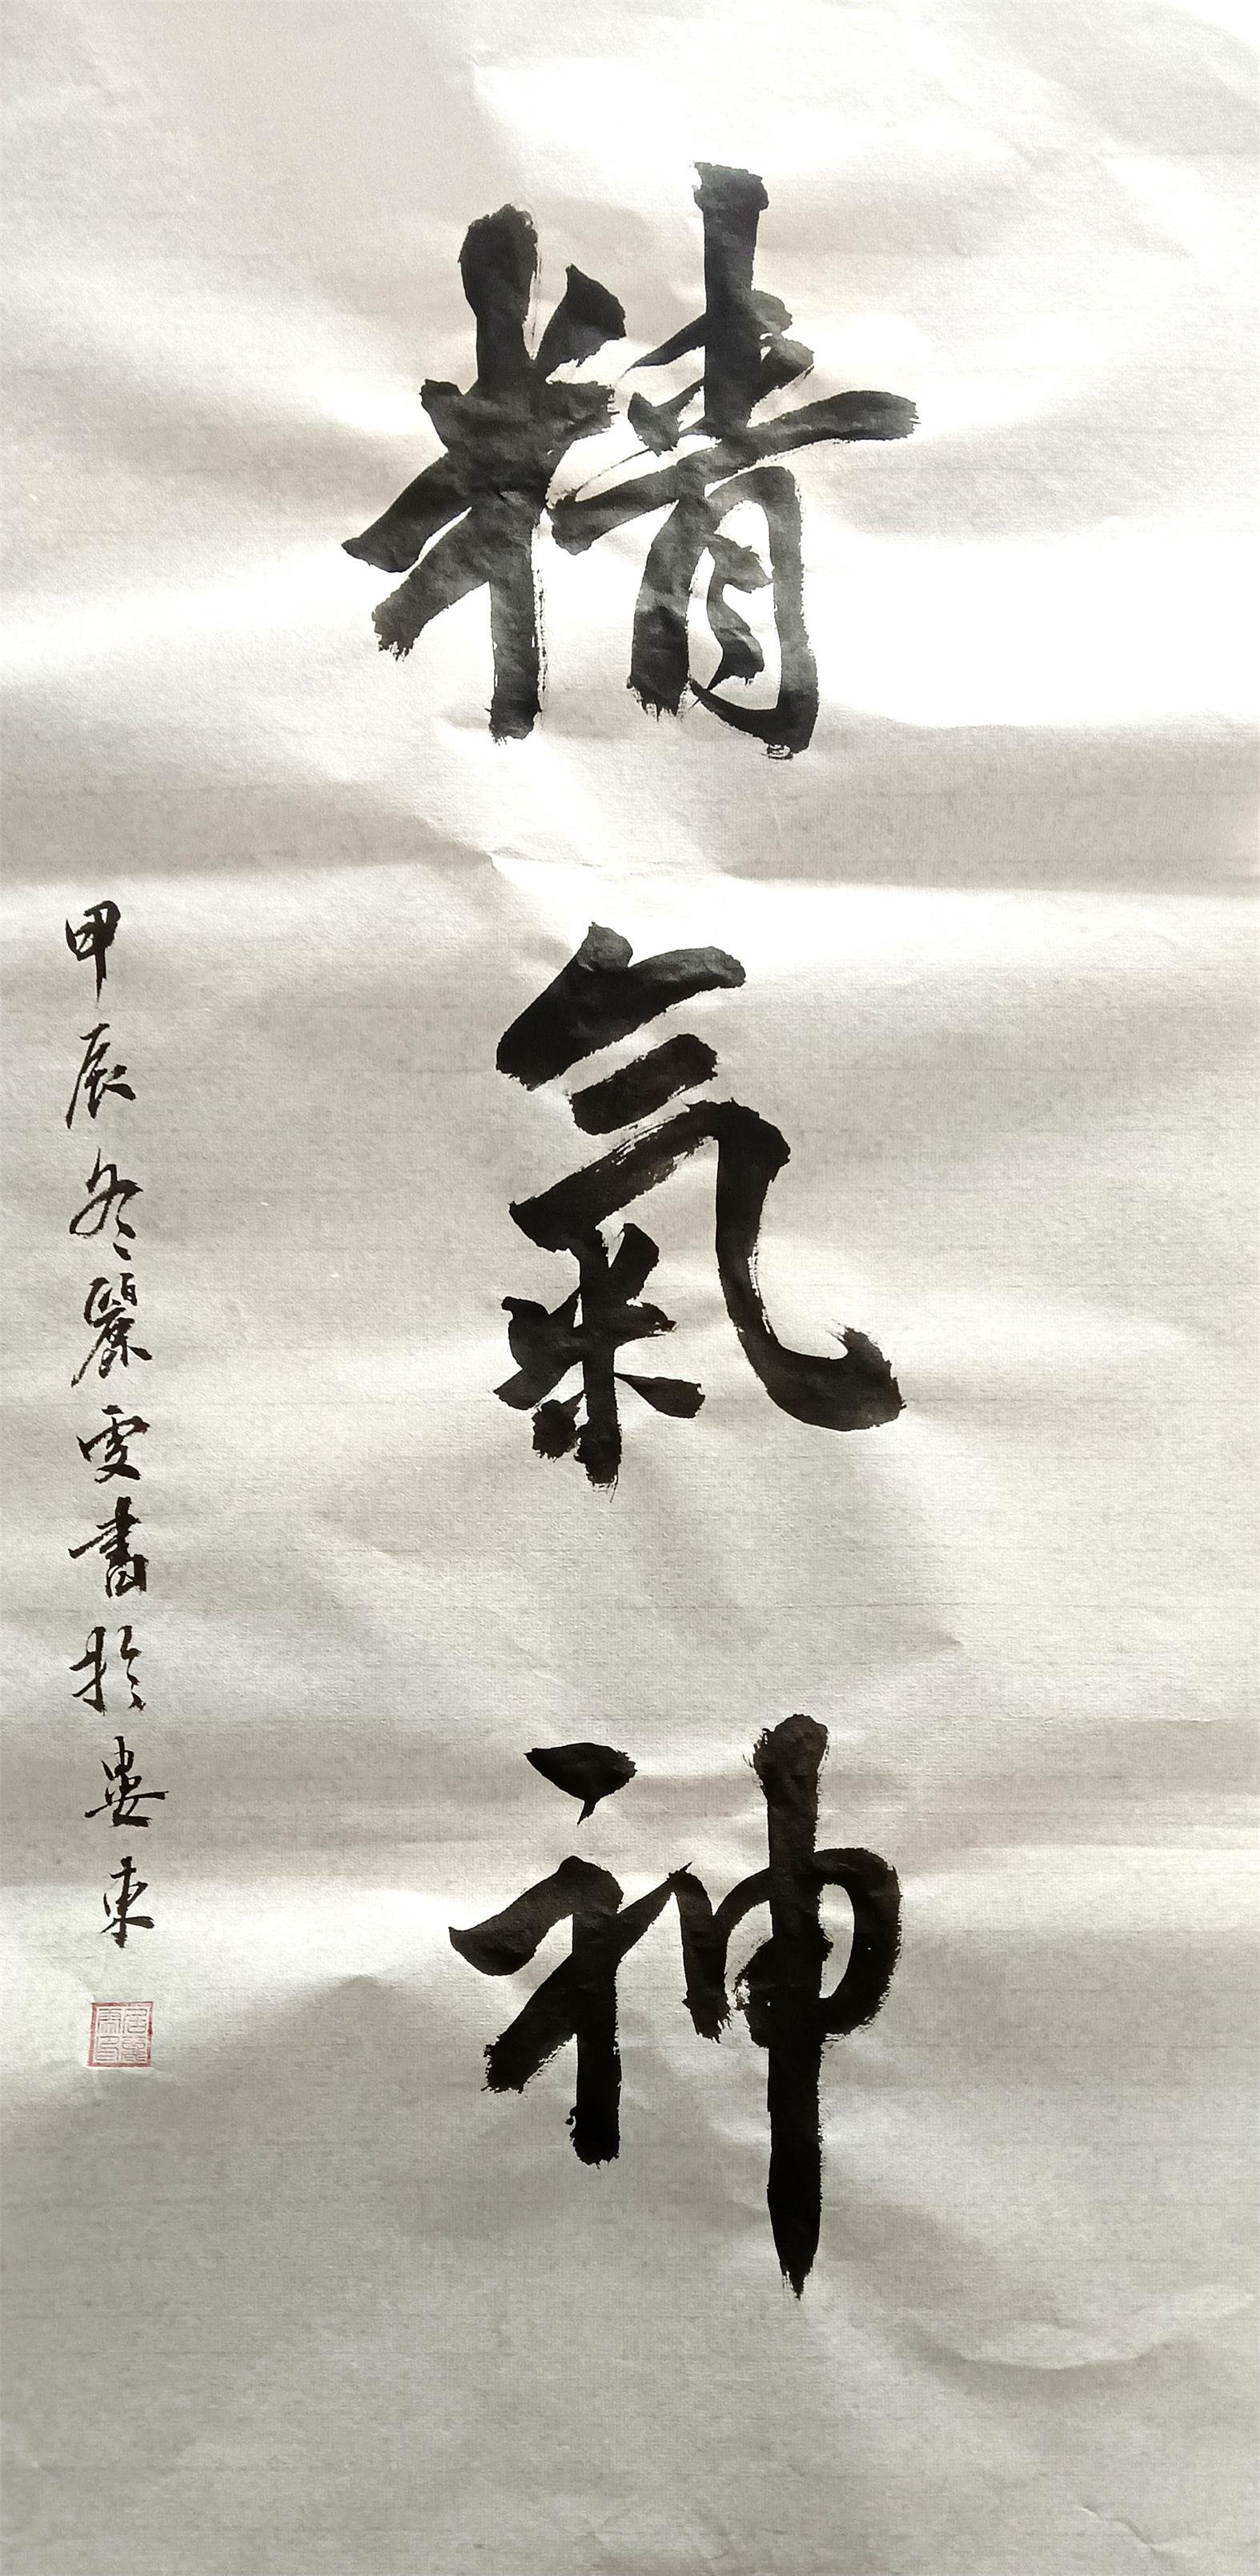 精氣神
甲辰冬麗雯書於婁東